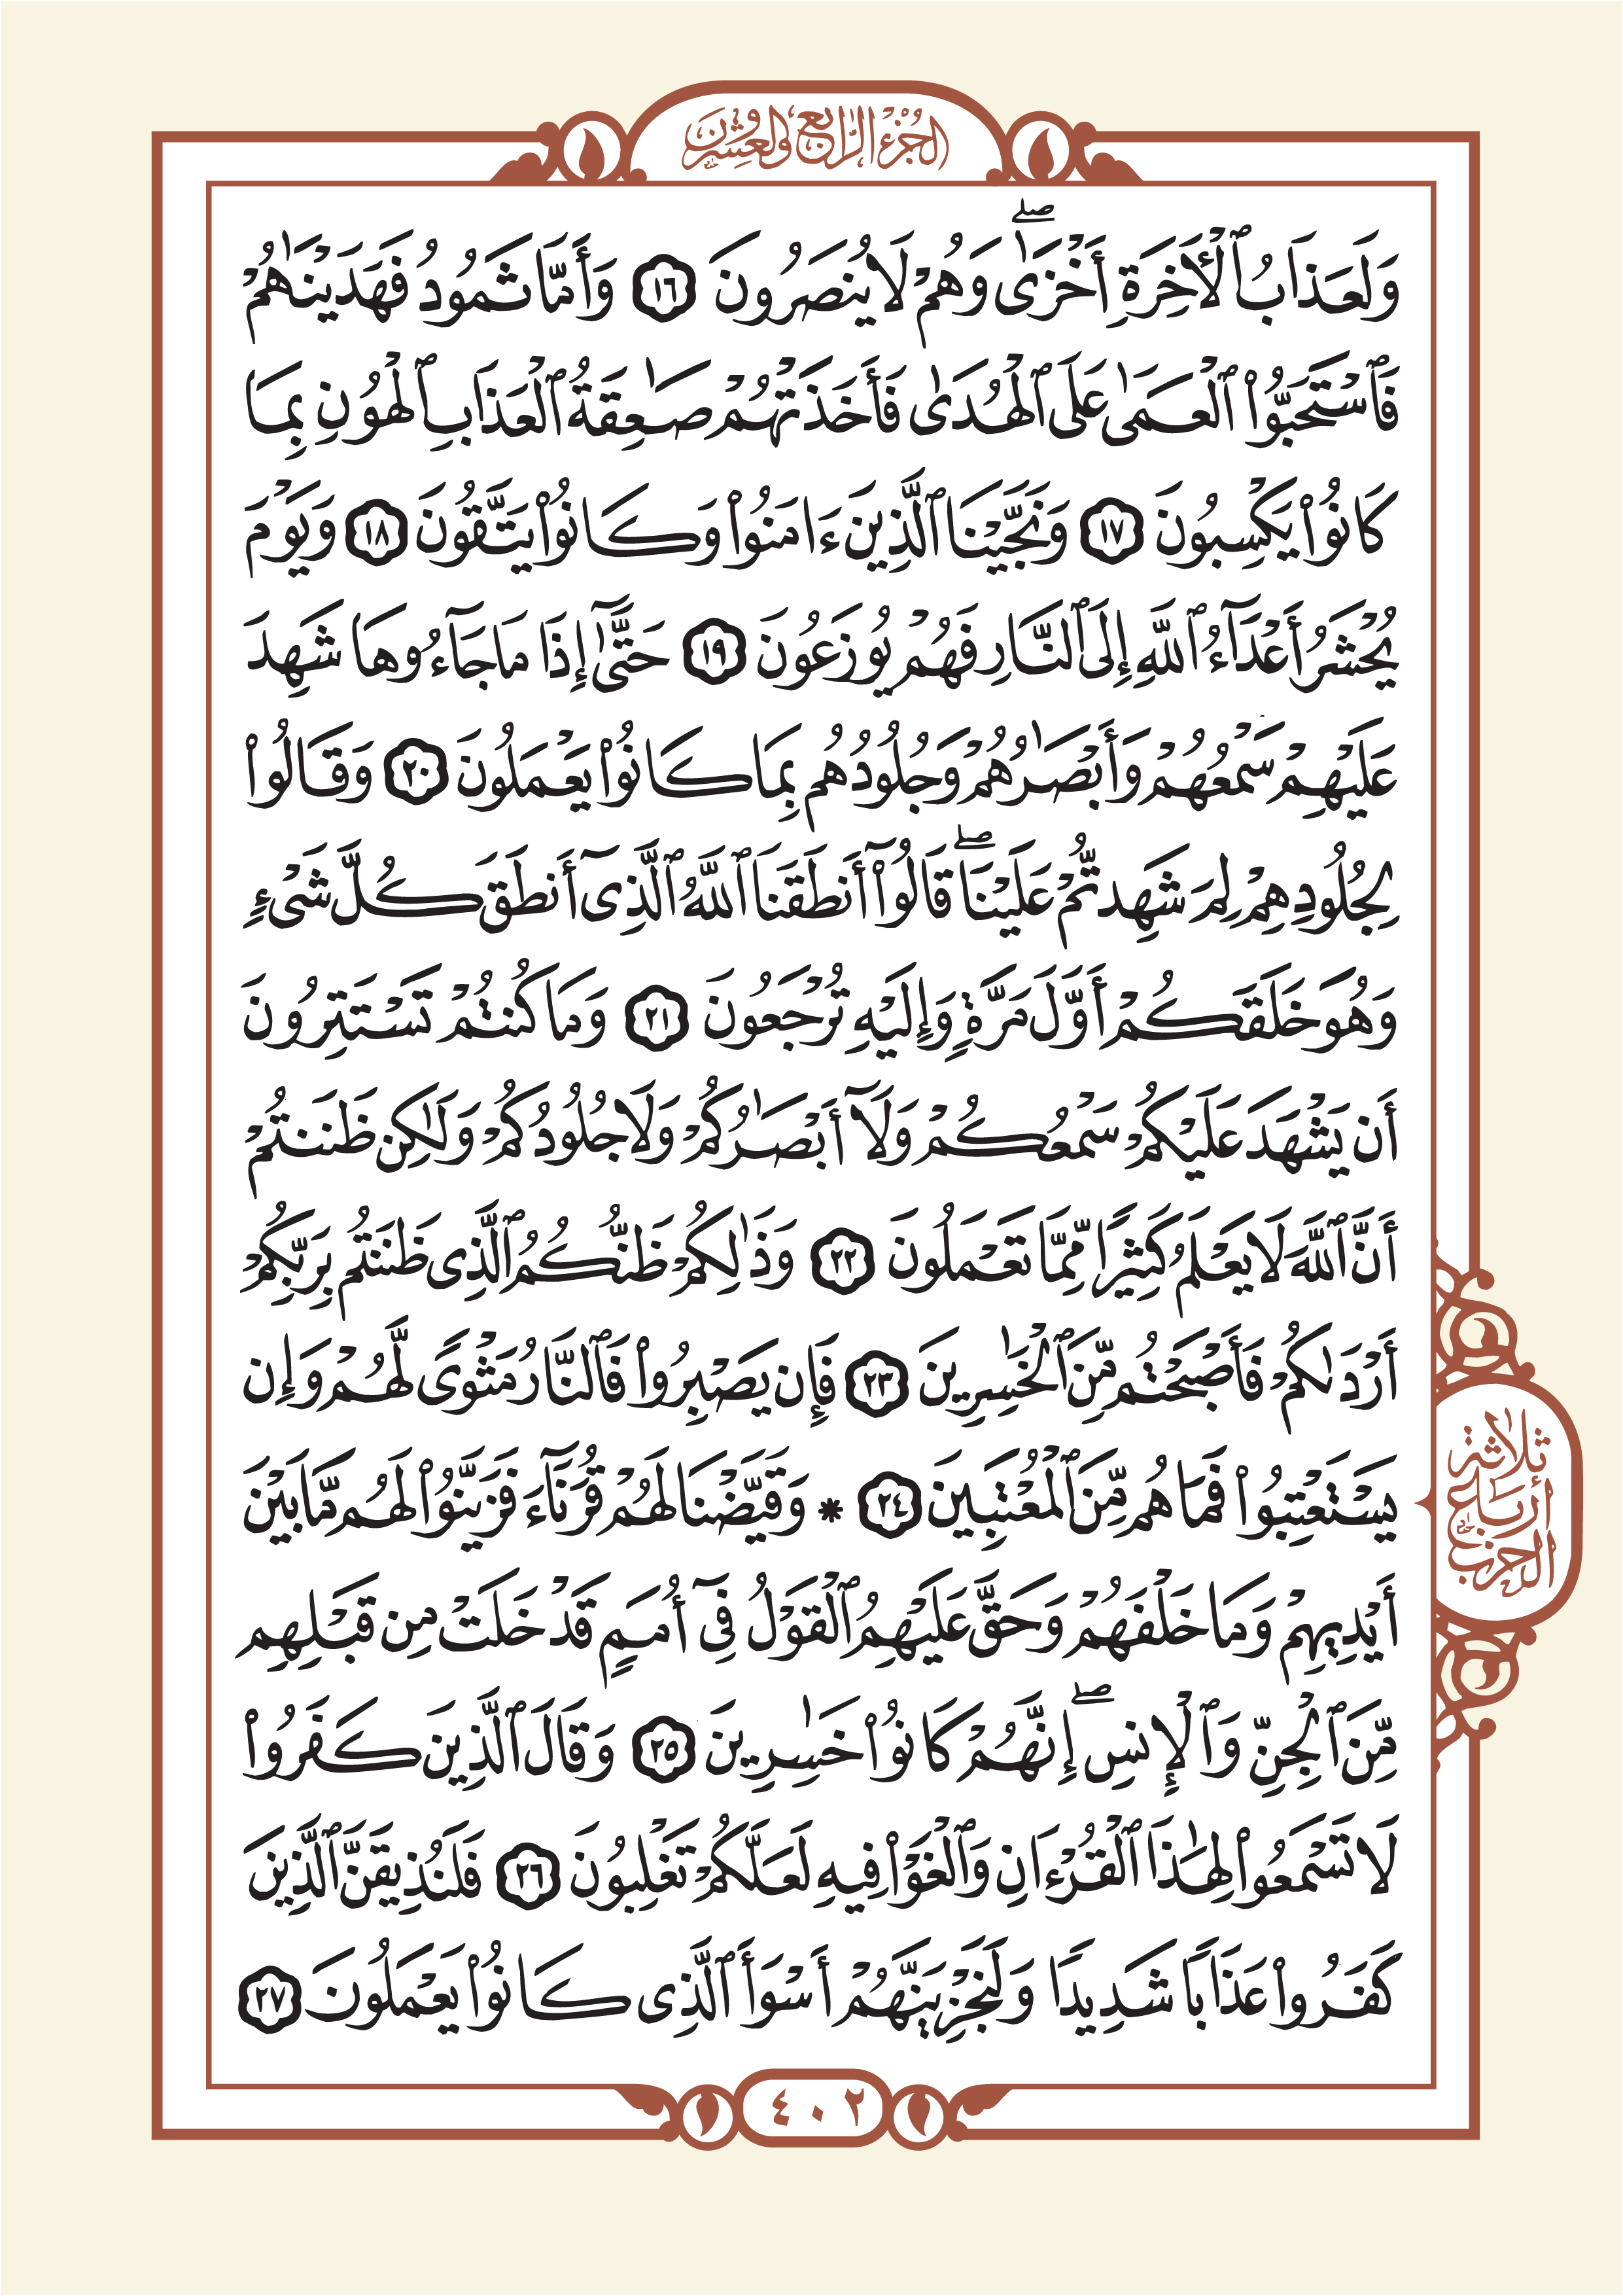 الجزء الرابع والعشرون
وَلَعَذَابُ ٱلْأَخِرَةِ أَخْزَىٰۖ وَهُمْ لَا يُنصَرُونَ ١٦ وَأَمَّا ثَمُودُ فَهَدَيْنَـٰهُمْ
فَٱسْتَحَبُّوا۟ ٱلْعَمَىٰ عَلَى ٱلْهُدَىٰ فَأَخَذَتْهُمْ صَـٰعِقَةُ ٱلْعَذَابِ ٱلْهُونِ بِمَا
كَانُوا۟ يَكْسِبُونَ ١٧ وَنَجَّيْنَا ٱلَّذِينَ ءَامَنُوا۟ وَكَانُوا۟ يَتَّقُونَ ١٨ وَيَوْمَ
يُحْشَرُ أَعْدَآءُ ٱللَّهِ إِلَى ٱلنَّارِ فَهُمْ يُوزَعُونَ ١٩ حَتَّىٰٓ إِذَا مَا جَآءُوهَا شَهِدَ
عَلَيْهِمْ سَمْعُهُمْ وَأَبْصَـٰرُهُمْ وَجُلُودُهُم بِمَا كَانُوا۟ يَعْمَلُونَ ٢٠ وَقَالُوا۟
لِجُلُودِهِمْ لِمَ شَهِدتُّمْ عَلَيْنَاۖ قَالُوٓا۟ أَنطَقَنَا ٱللَّهُ ٱلَّذِىٓ أَنطَقَ كُلَّ شَىْءٍ
وَهُوَ خَلَقَكُمْ أَوَّلَ مَرَّةٍ وَإِلَيْهِ تُرْجَعُونَ ٢١ وَمَا كُنتُمْ تَسْتَتِرُونَ
أَن يَشْهَدَ عَلَيْكُمْ سَمْعُكُمْ وَلَآ أَبْصَـٰرُكُمْ وَلَا جُلُودُكُمْ وَلَـٰكِن ظَنَنتُمْ
أَنَّ ٱللَّهَ لَا يَعْلَمُ كَثِيرًا مِّمَّا تَعْمَلُونَ ٢٢ وَذَٰلِكُمْ ظَنُّكُمُ ٱلَّذِى ظَنَنتُم بِرَبِّكُمْ
أَرْدَىٰكُمْ فَأَصْبَحْتُم مِّنَ ٱلْخَـٰسِرِينَ ٢٣ فَإِن يَصْبِرُوا۟ فَٱلنَّارُ مَثْوًى لَّهُمْ وَإِن
يَسْتَعْتِبُوا۟ فَمَا هُم مِّنَ ٱلْمُعْتَبِينَ ٢٤ * وَقَيَّضْنَا لَهُمْ قُرَنَآءَ فَزَيَّنُوا۟ لَهُم مَّا بَيْنَ
أَيْدِيهِمْ وَمَا خَلْفَهُمْ وَحَقَّ عَلَيْهِمُ ٱلْقَوْلُ فِىٓ أُمَمٍ قَدْ خَلَتْ مِن قَبْلِهِم
مِّنَ ٱلْجِنِّ وَٱلْإِنسِۖ إِنَّهُمْ كَانُوا۟ خَـٰسِرِينَ ٢٥ وَقَالَ ٱلَّذِينَ كَفَرُوا۟
لَا تَسْمَعُوا۟ لِهَـٰذَا ٱلْقُرْءَانِ وَٱلْغَوْا۟ فِيهِ لَعَلَّكُمْ تَغْلِبُونَ ٢٦ فَلَنُذِيقَنَّ ٱلَّذِينَ
كَفَرُوا۟ عَذَابًا شَدِيدًا وَلَنَجْزِيَنَّهُمْ أَسْوَأَ ٱلَّذِى كَانُوا۟ يَعْمَلُونَ ٢٧
ثلاثة
أرباع
الحزب
٤٠٢